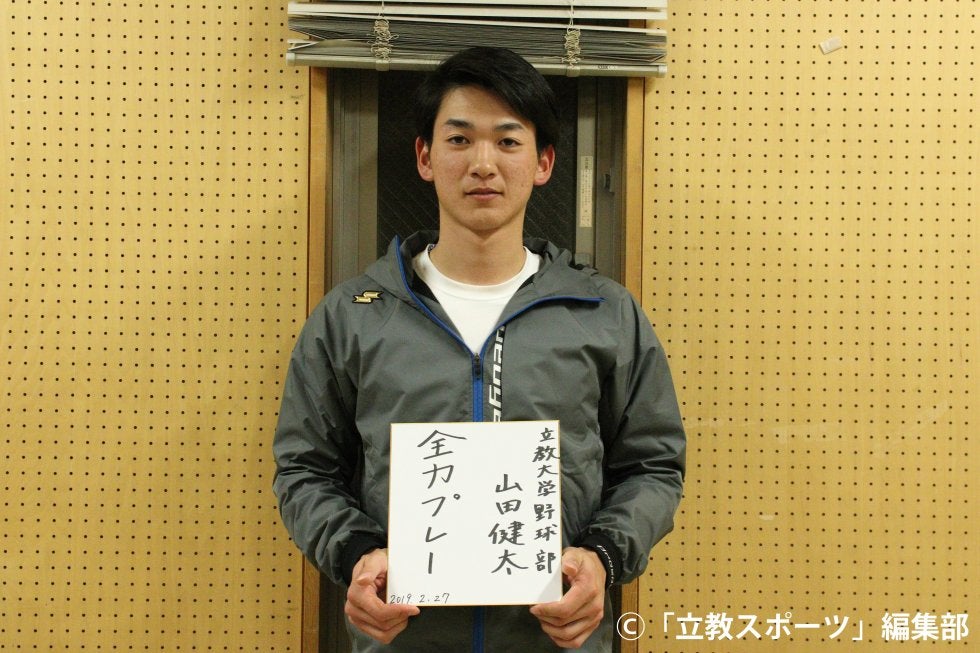 立教大学野球部
山田健太
全力プレー
2019.2.27
©「立教スポーツ」編集部